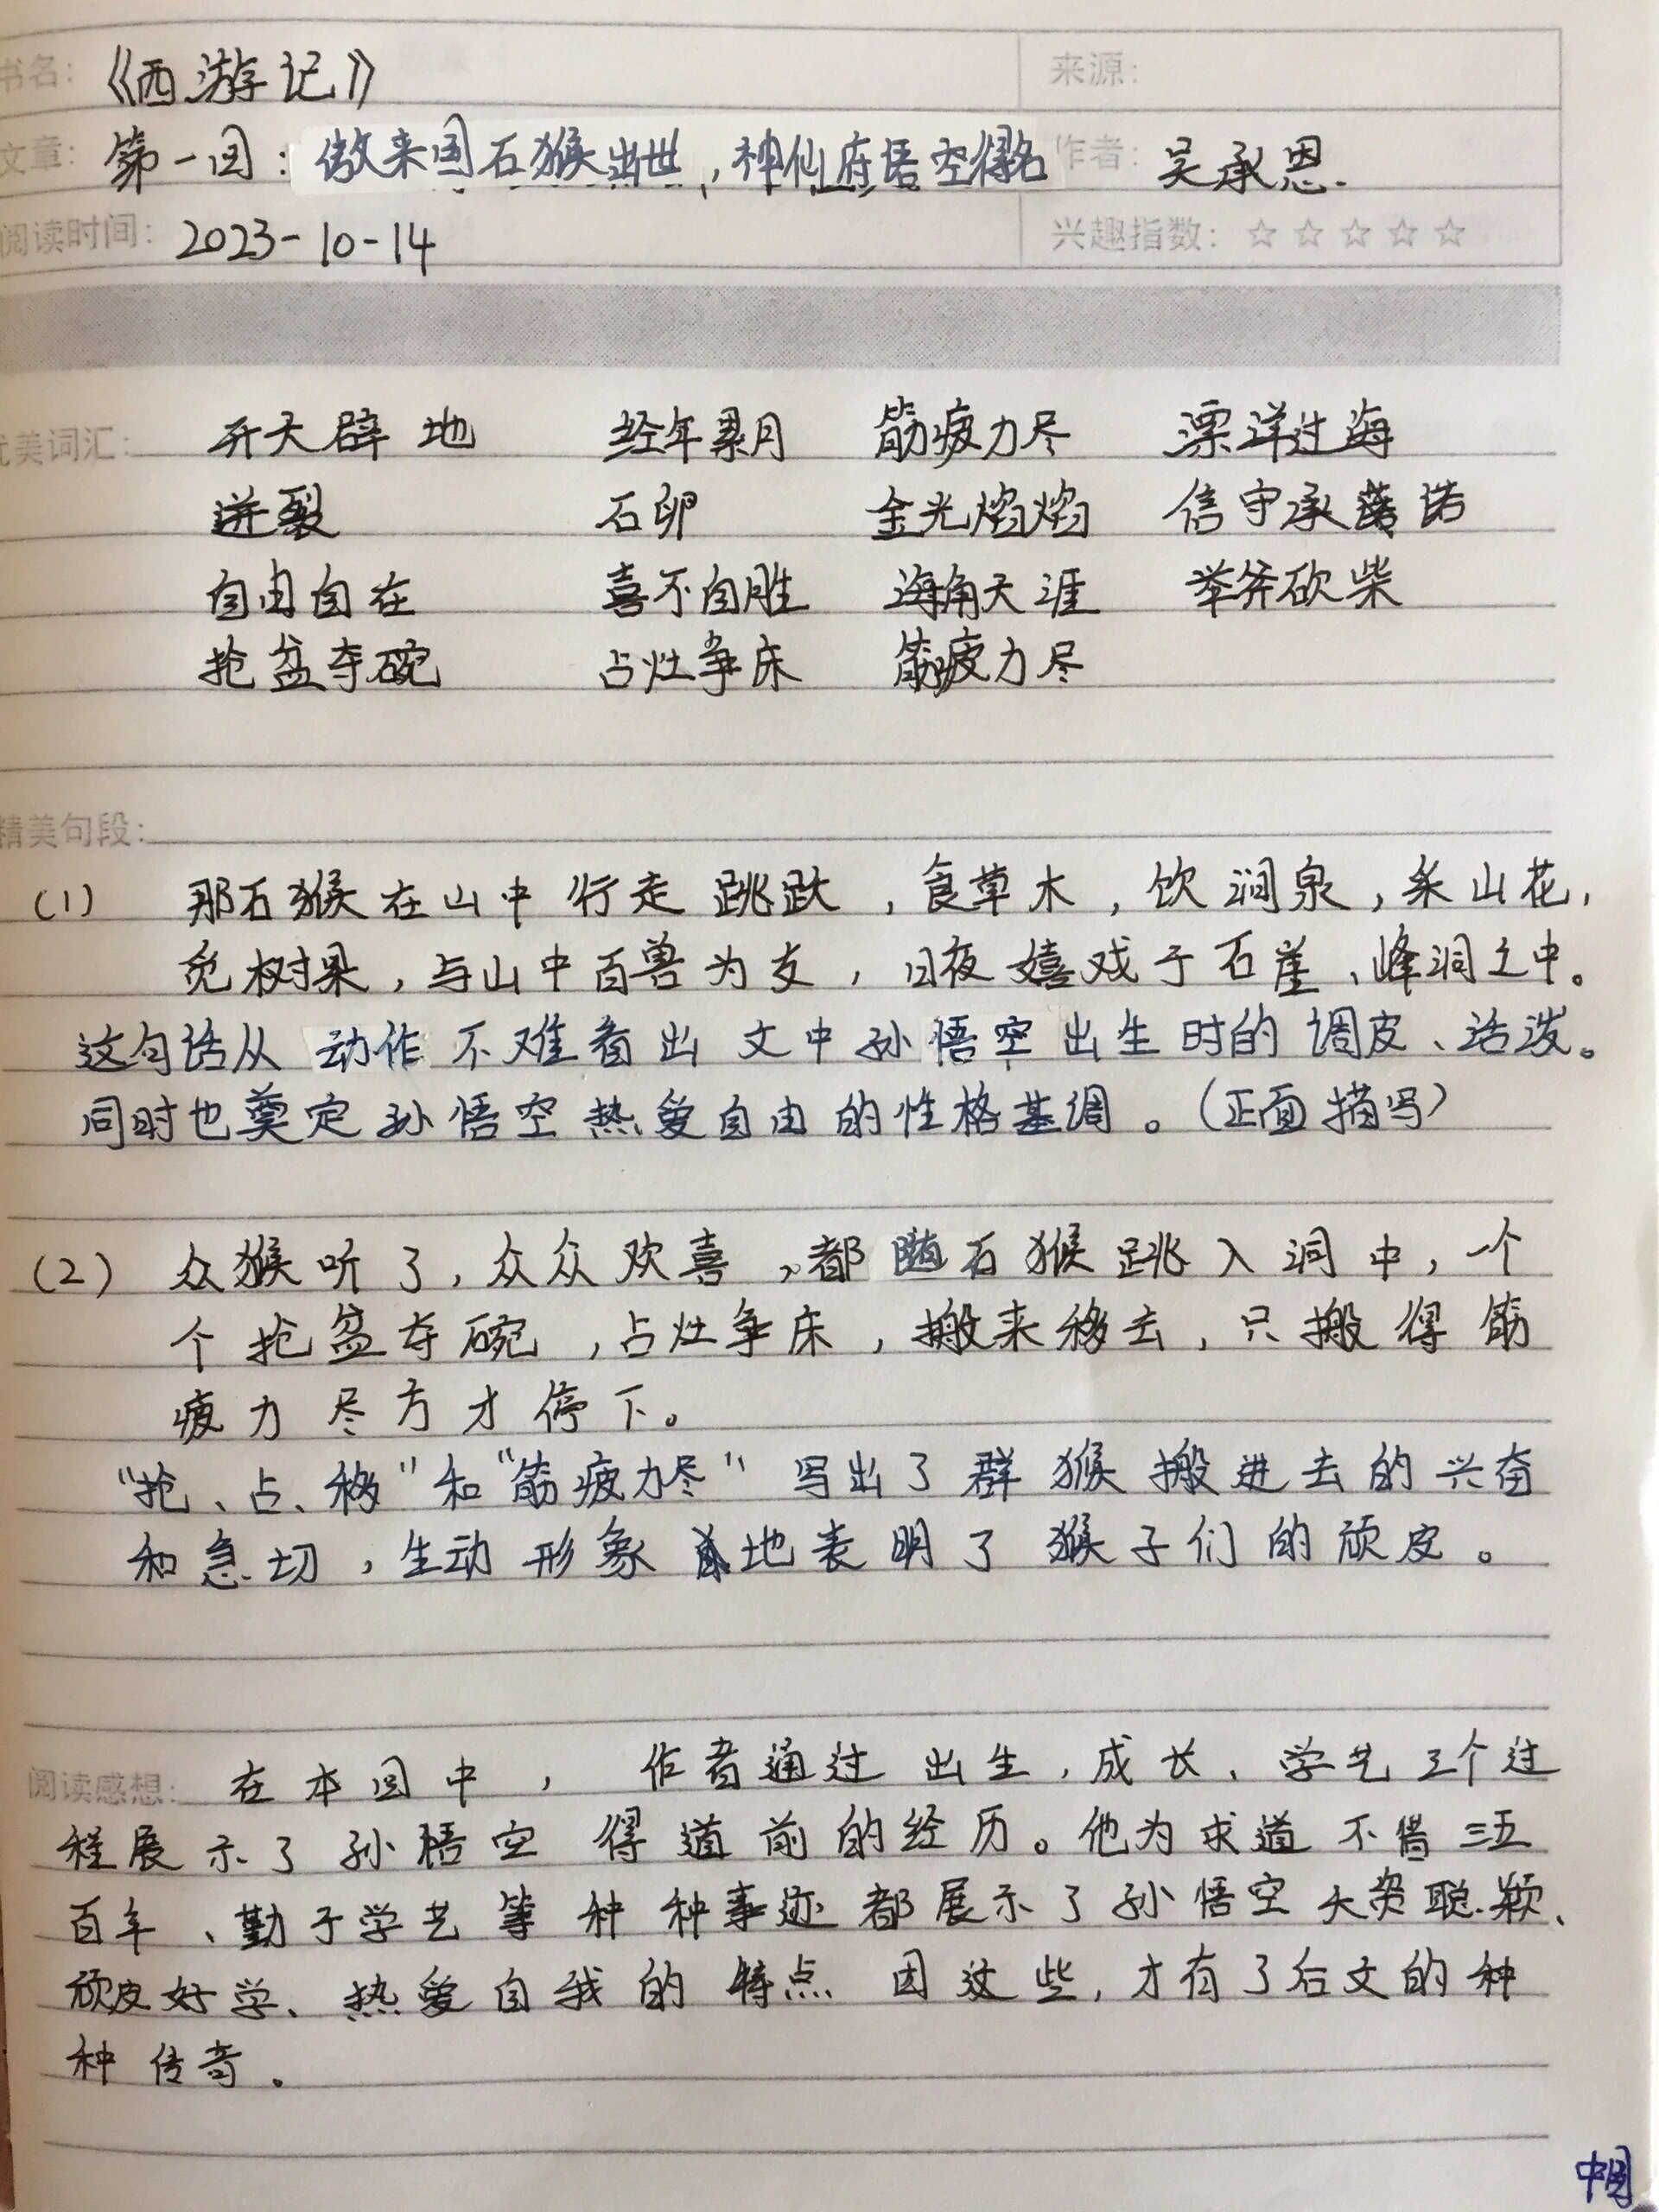 书名：《西游记》 来源：
文章：第一回：傲来国石猴出世，神仙府悟空得名 作者：吴承恩.
阅读时间：2023-10-14 兴趣指数：☆☆☆☆☆
优美词汇： 开天辟地 经年累月 筋疲力尽 漂洋过海
迸裂 石卵 金光焰焰 信守承诺
自由自在 喜不自胜 海角天涯 举斧砍柴
抢盆夺碗 占灶争床 筋疲力尽
精美句段：
(1) 那石猴在山中行走跳跃，食草木，饮涧泉，采山花，
觅树果，与山中百兽为友，日夜嬉戏于石崖、峰洞之中。
这句话从动作不难看出文中孙悟空出生时的调皮、活泼。
同时也奠定孙悟空热爱自由的性格基调。（正面描写）
(2) 众猴听了，众众欢喜，都随石猴跳入洞中，一个
个抢盆夺碗，占灶争床，搬来移去，只搬得筋
疲力尽方才停下。
“抢、占、移”和“筋疲力尽”写出了群猴搬进去的兴奋
和急切，生动形象地表明了猴子们的顽皮。
阅读感想：在本回中，作者通过出生，成长、学艺三个过
程展示了孙悟空得道前的经历。他为求道不惜三五
百年、勤于学艺等种种事迹都展示了孙悟空天资聪颖、
顽皮好学、热爱自我的特点 因这些，才有了后文的种
种传奇。